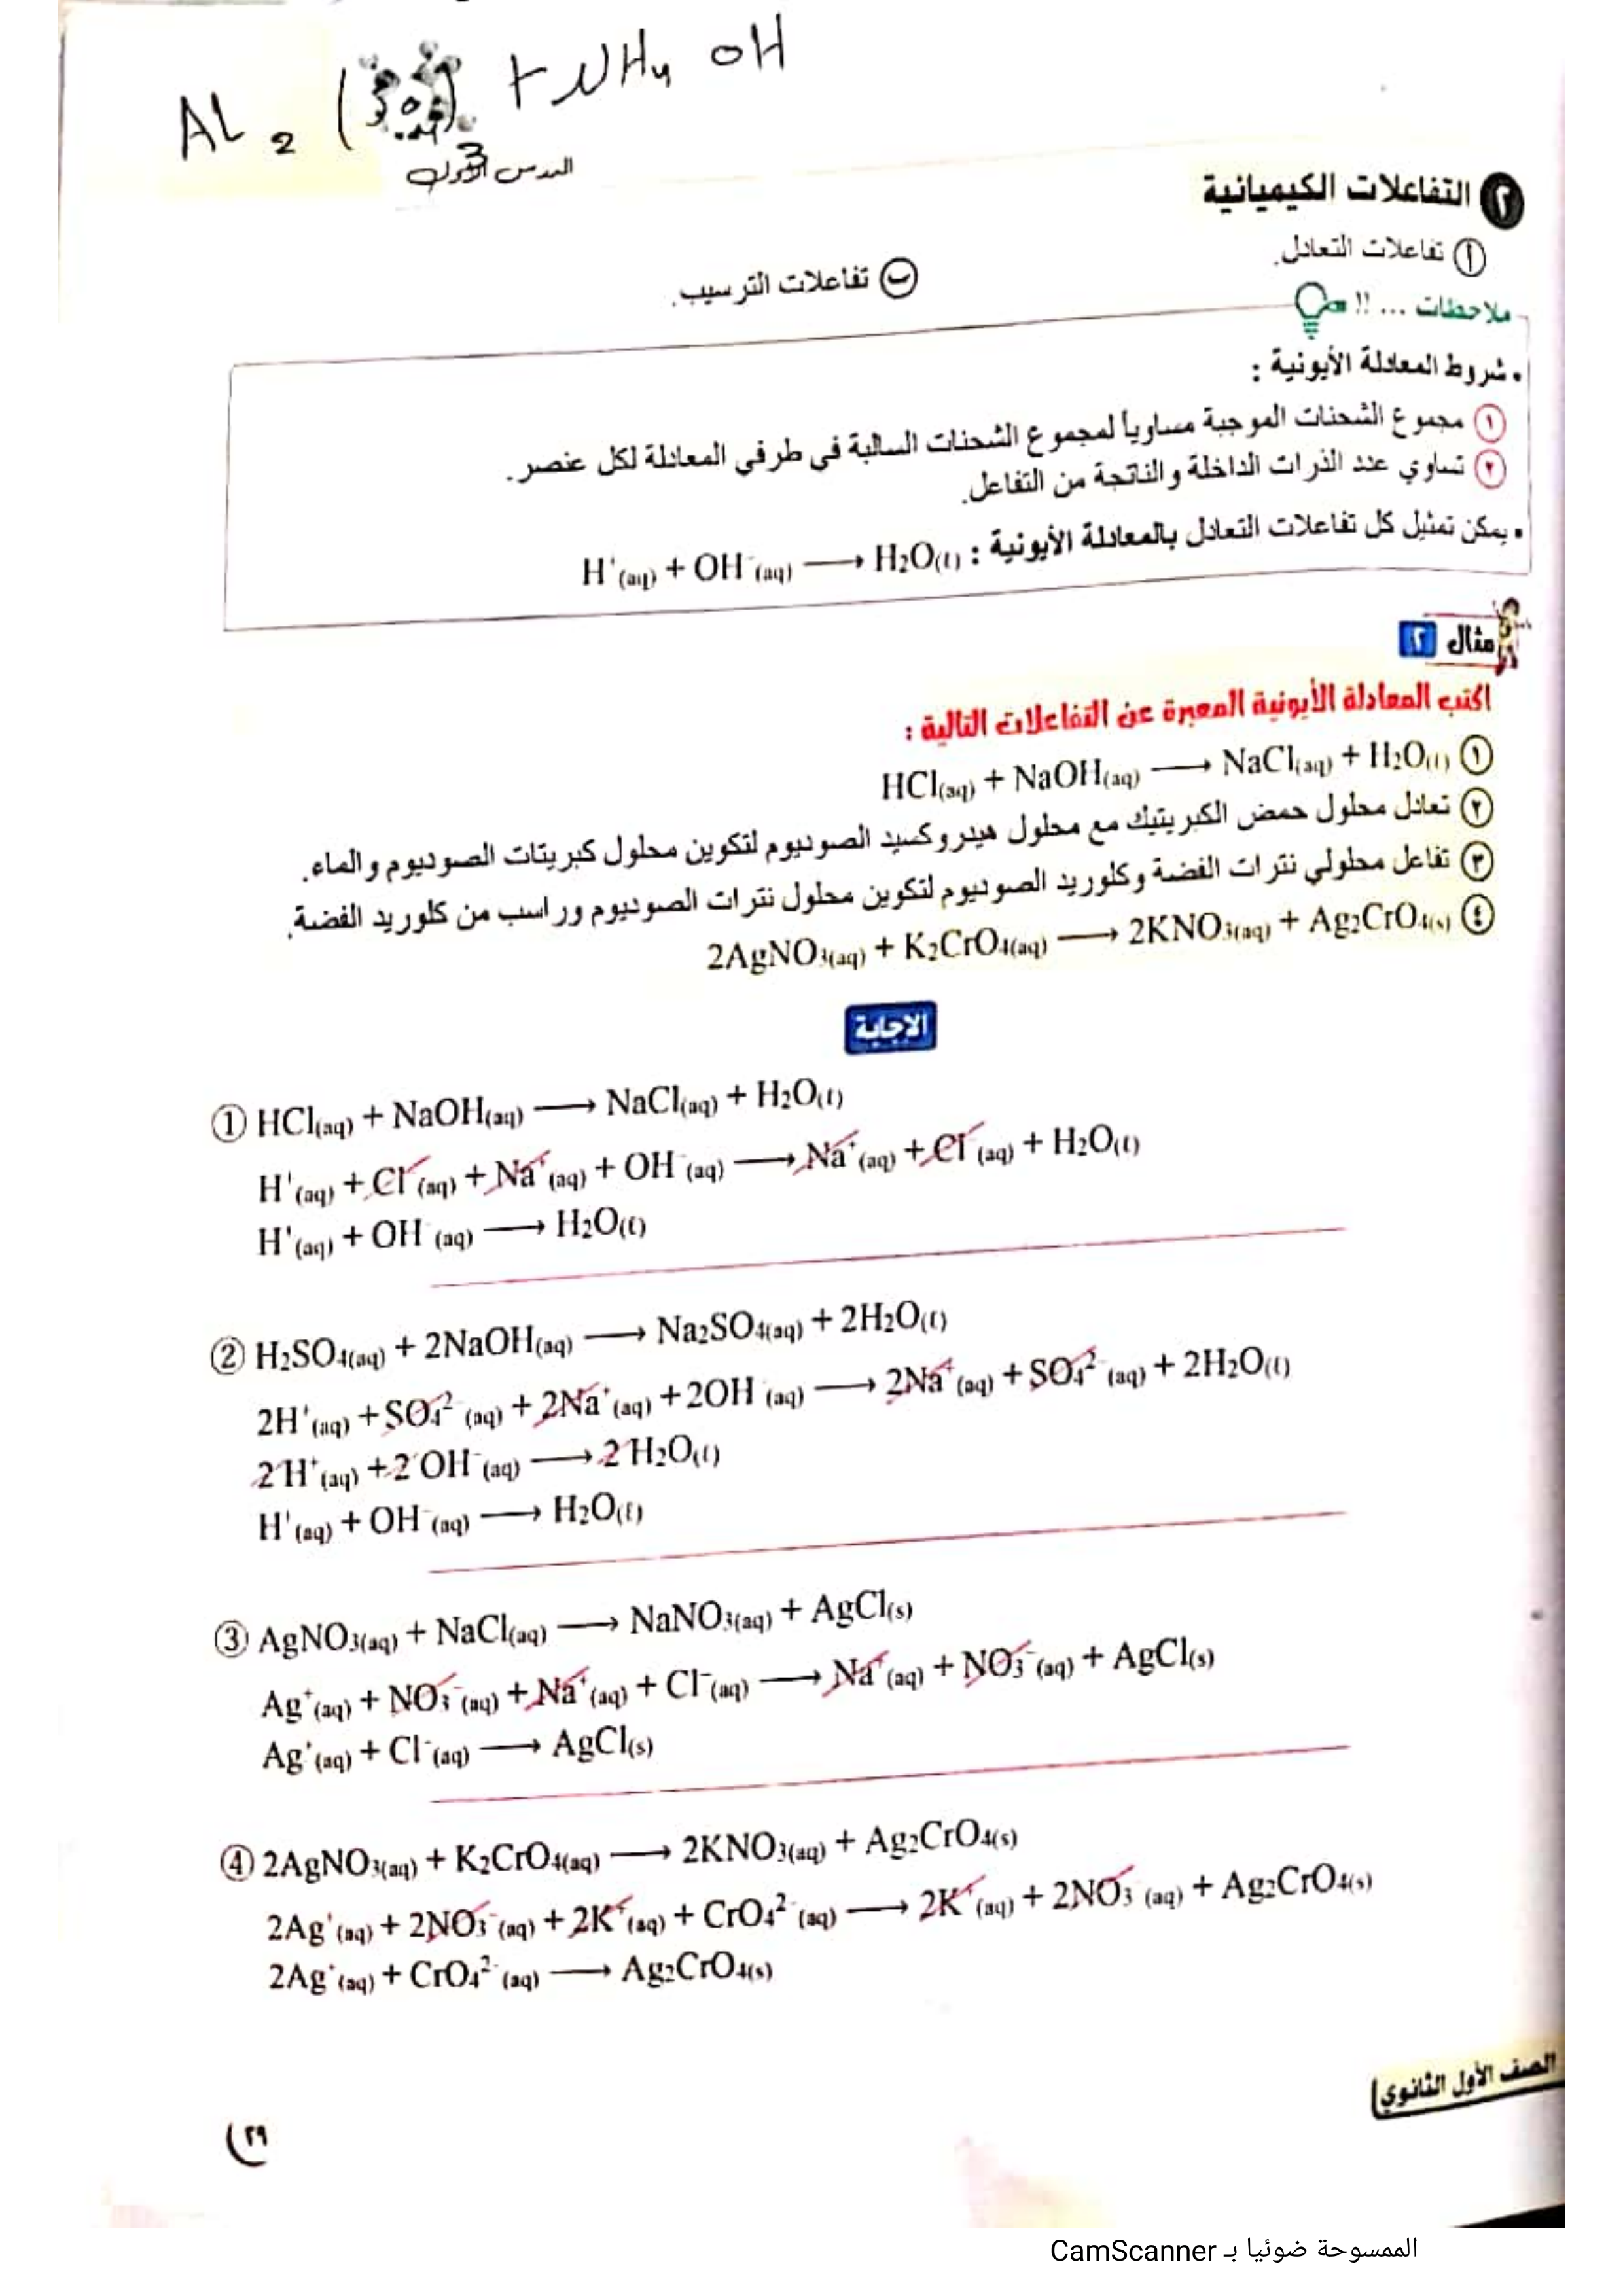 AL₂ (SO₄)₃ + NH₄ OH
الدرس الأول
٢ التفاعلات الكيميائية
أ تفاعلات التعادل.
ب تفاعلات الترسيب.
ملاحظات ... !!
• شروط المعادلة الأيونية :
١ مجموع الشحنات الموجبة مساوياً لمجموع الشحنات السالبة في طرفي المعادلة لكل عنصر.
٢ تساوي عدد الذرات الداخلة والناتجة من التفاعل.
• يمكن تمثيل كل تفاعلات التعادل بالمعادلة الأيونية : H⁺(aq) + OH⁻(aq) ⟶ H₂O(l)
مثال ٢
اكتب المعادلة الأيونية المعبرة عن التفاعلات التالية :
١ HCl(aq) + NaOH(aq) ⟶ NaCl(aq) + H₂O(l)
٢ تعادل محلول حمض الكبريتيك مع محلول هيدروكسيد الصوديوم لتكوين محلول كبريتات الصوديوم والماء.
٣ تفاعل محلولي نترات الفضة وكلوريد الصوديوم لتكوين محلول نترات الصوديوم وراسب من كلوريد الفضة.
٤ 2AgNO₃(aq) + K₂CrO₄(aq) ⟶ 2KNO₃(aq) + Ag₂CrO₄(s)
الاجابة
① HCl(aq) + NaOH(aq) ⟶ NaCl(aq) + H₂O(l)
H⁺(aq) + Cl⁻(aq) + Na⁺(aq) + OH⁻(aq) ⟶ Na⁺(aq) + Cl⁻(aq) + H₂O(l)
H⁺(aq) + OH⁻(aq) ⟶ H₂O(l)
② H₂SO₄(aq) + 2NaOH(aq) ⟶ Na₂SO₄(aq) + 2H₂O(l)
2H⁺(aq) + SO₄²⁻(aq) + 2Na⁺(aq) + 2OH⁻(aq) ⟶ 2Na⁺(aq) + SO₄²⁻(aq) + 2H₂O(l)
2H⁺(aq) + 2OH⁻(aq) ⟶ 2H₂O(l)
H⁺(aq) + OH⁻(aq) ⟶ H₂O(l)
③ AgNO₃(aq) + NaCl(aq) ⟶ NaNO₃(aq) + AgCl(s)
Ag⁺(aq) + NO₃⁻(aq) + Na⁺(aq) + Cl⁻(aq) ⟶ Na⁺(aq) + NO₃⁻(aq) + AgCl(s)
Ag⁺(aq) + Cl⁻(aq) ⟶ AgCl(s)
④ 2AgNO₃(aq) + K₂CrO₄(aq) ⟶ 2KNO₃(aq) + Ag₂CrO₄(s)
2Ag⁺(aq) + 2NO₃⁻(aq) + 2K⁺(aq) + CrO₄²⁻(aq) ⟶ 2K⁺(aq) + 2NO₃⁻(aq) + Ag₂CrO₄(s)
2Ag⁺(aq) + CrO₄²⁻(aq) ⟶ Ag₂CrO₄(s)
الصف الأول الثانوي
٢٩
الممسوحة ضوئيا بـ CamScanner